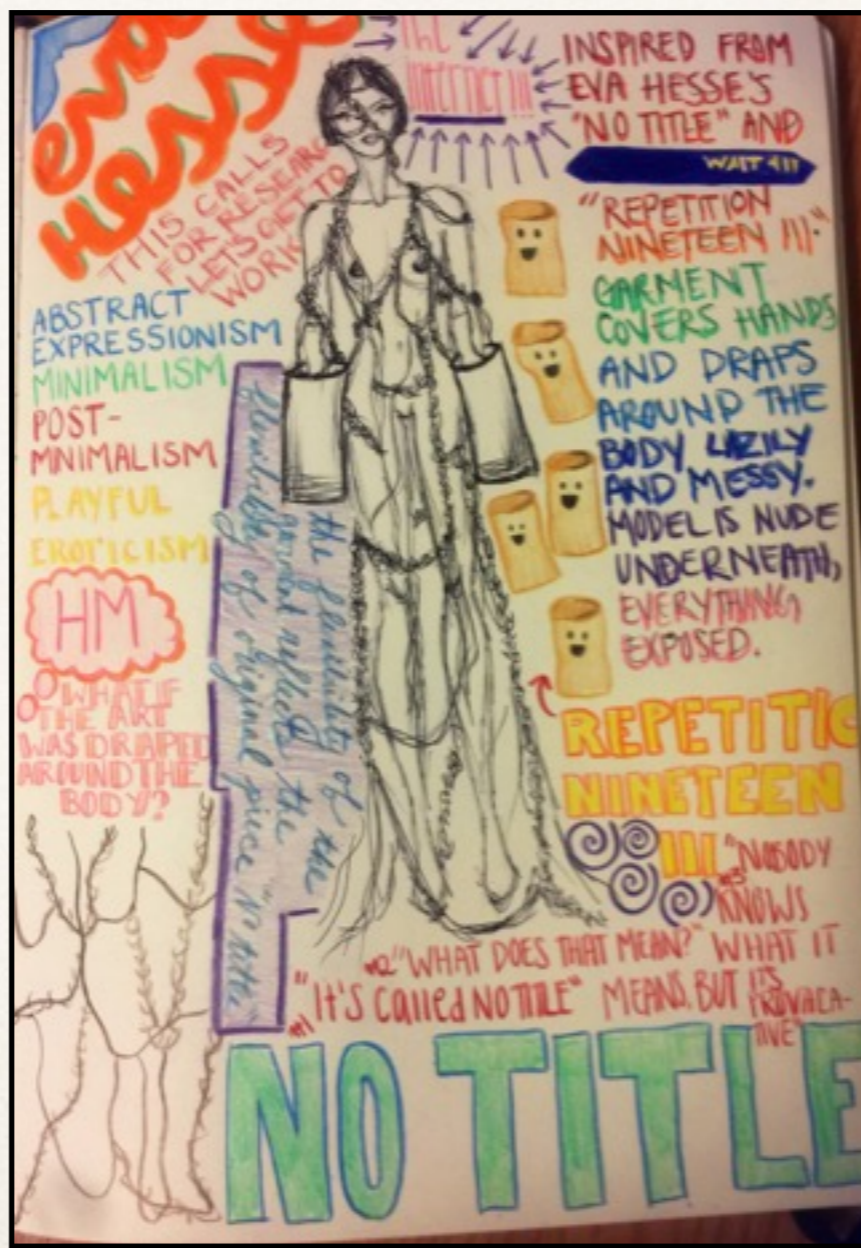 eva
Hesse
THIS CALLS
FOR RESEARC
LETS GET TO
WORK
The
internet!!!
INSPIRED FROM
EVA HESSE'S
"NO TITLE" AND
WAIT 4 IT
"REPETITION
NINETEEN III."
GARMENT
COVERS HANDS
AND DRAPS
AROUND THE
BODY LAZILY
AND MESSY.
MODEL IS NUDE
UNDERNEATH,
EVERYTHING
EXPOSED.
ABSTRACT
EXPRESSIONISM
MINIMALISM
POST-
MNIMALISM
PLAYFUL
EROTICISM
HM
WHAT IF
THE ART
WAS DRAPED
AROUND THE
BODY?
the flexibility of the
garment reflects the
flexibility of original piece "No title"
REPETITIO
NINETEEN
III
#1 "It's called NO TITLE"
#2 "WHAT DOES THAT MEAN?"
#3 "NOBODY
KNOWS
WHAT IT
MEANS, BUT ITS
PROVACA-
TIVE"
NO TITLE